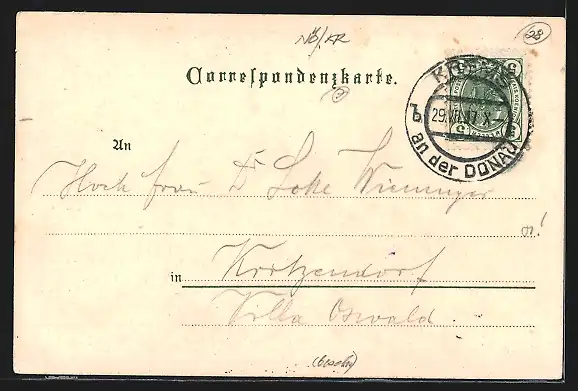 NÖ/KR
28
Correspondenzkarte.
2
KREMS
5
b 29.VII.11 X-
5
an der DONAU
An
Hoch frau Dr Loke Wieninger
in Kritzendorf
Villa Oswald